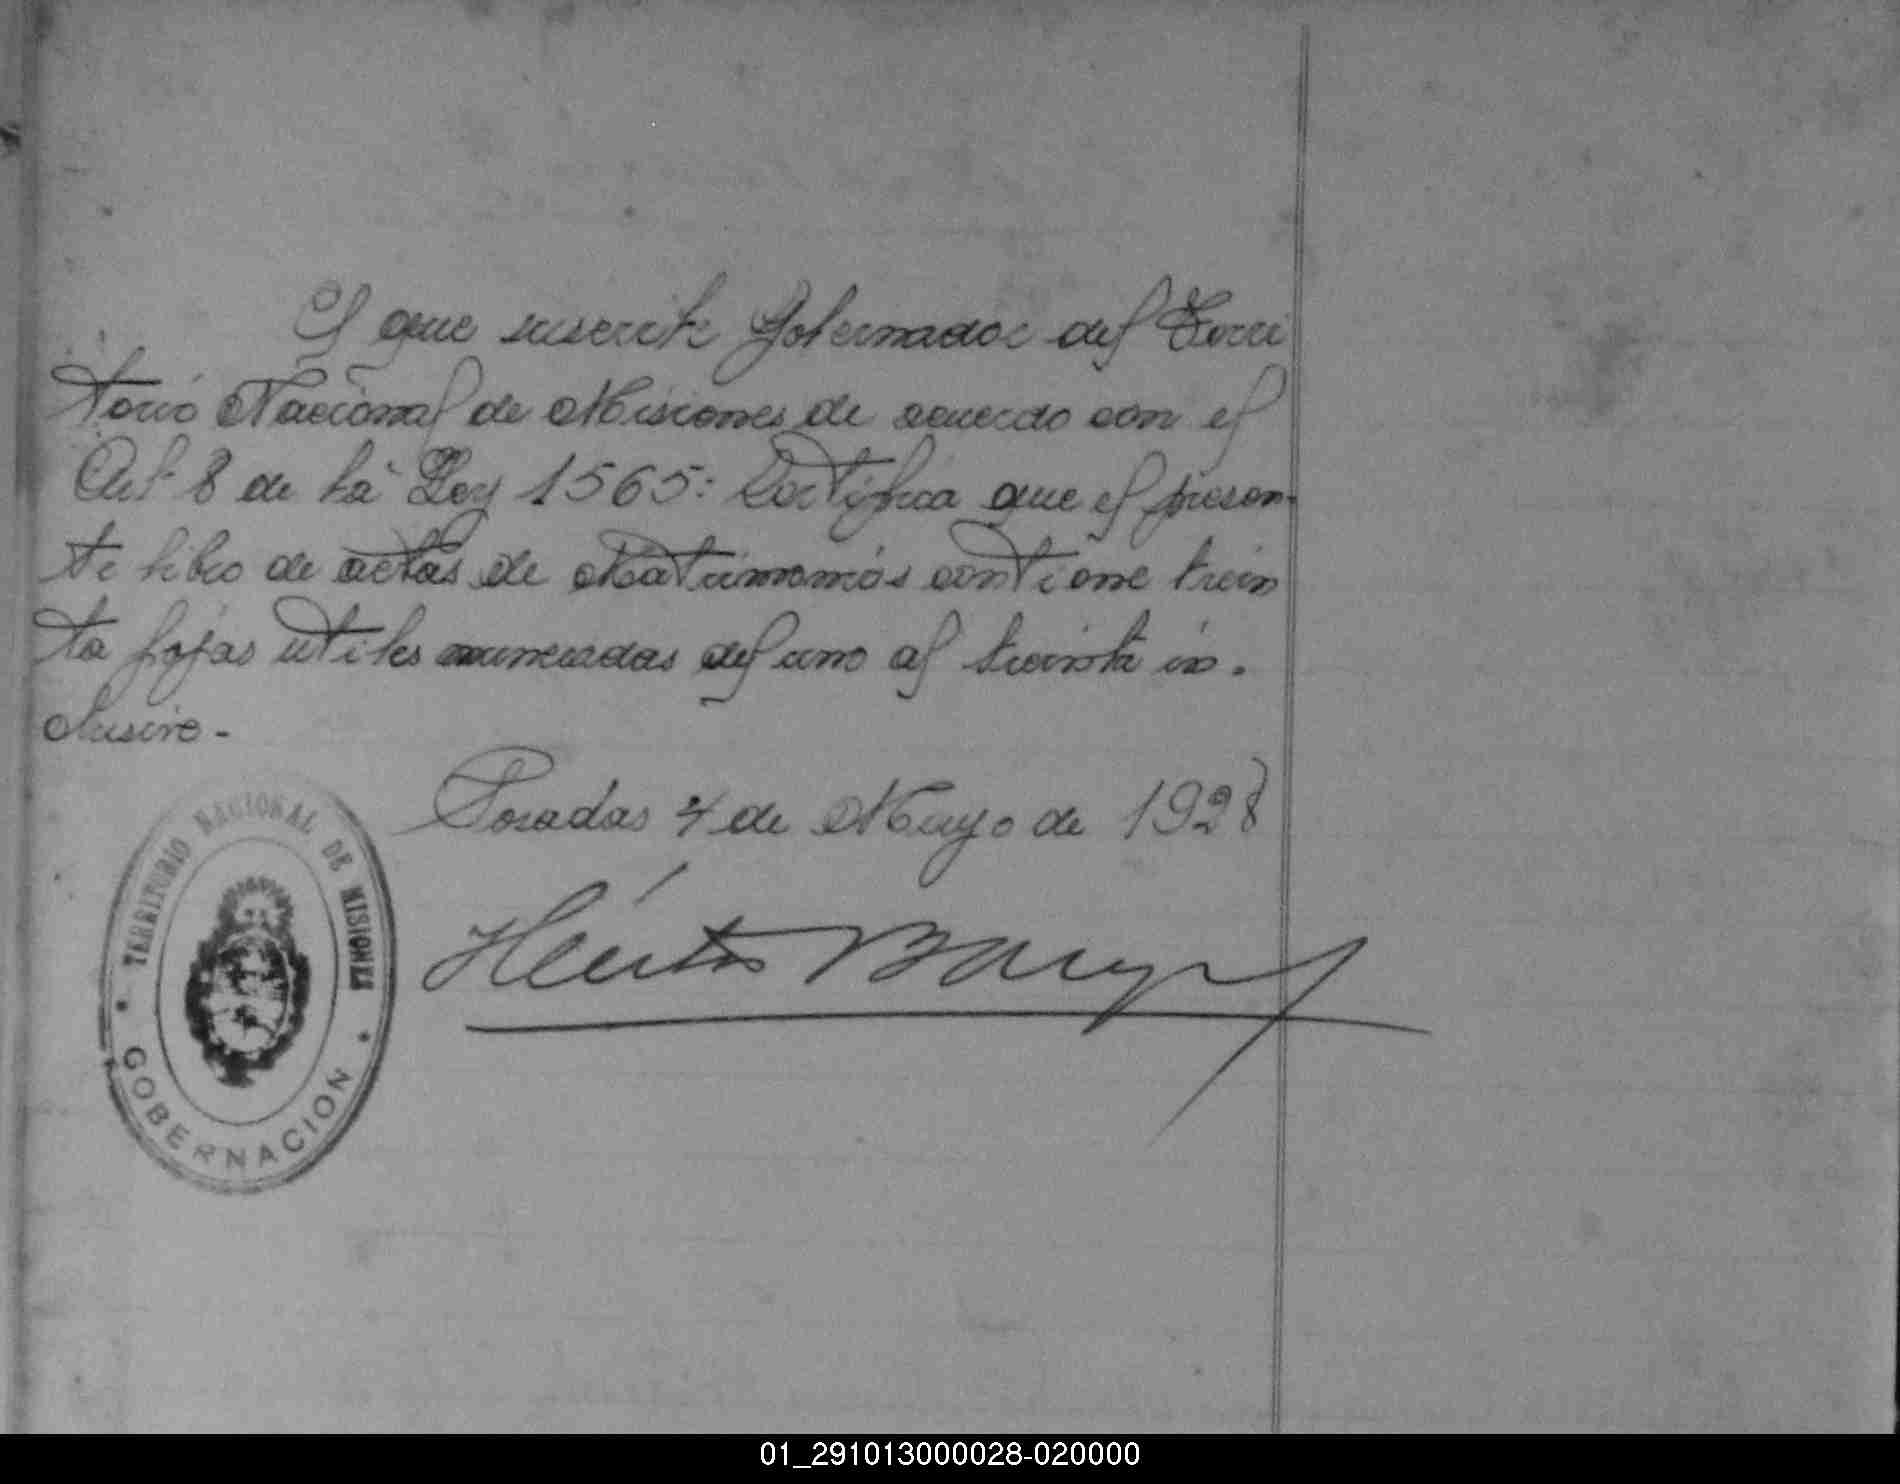 El que suscribe Gobernador del Terri
torio Nacional de Misiones de acuerdo con el
Art 8 de la Ley 1565: Certifica que el presen-
te libro de actas de Matrimonios contiene trein
ta fojas utiles numeradas del uno al treinta in-
clusive-
Posadas 4 de Mayo de 1928
Héctor Barreyro
TERRITORIO NACIONAL DE MISIONES
GOBERNACION
01_291013000028-020000